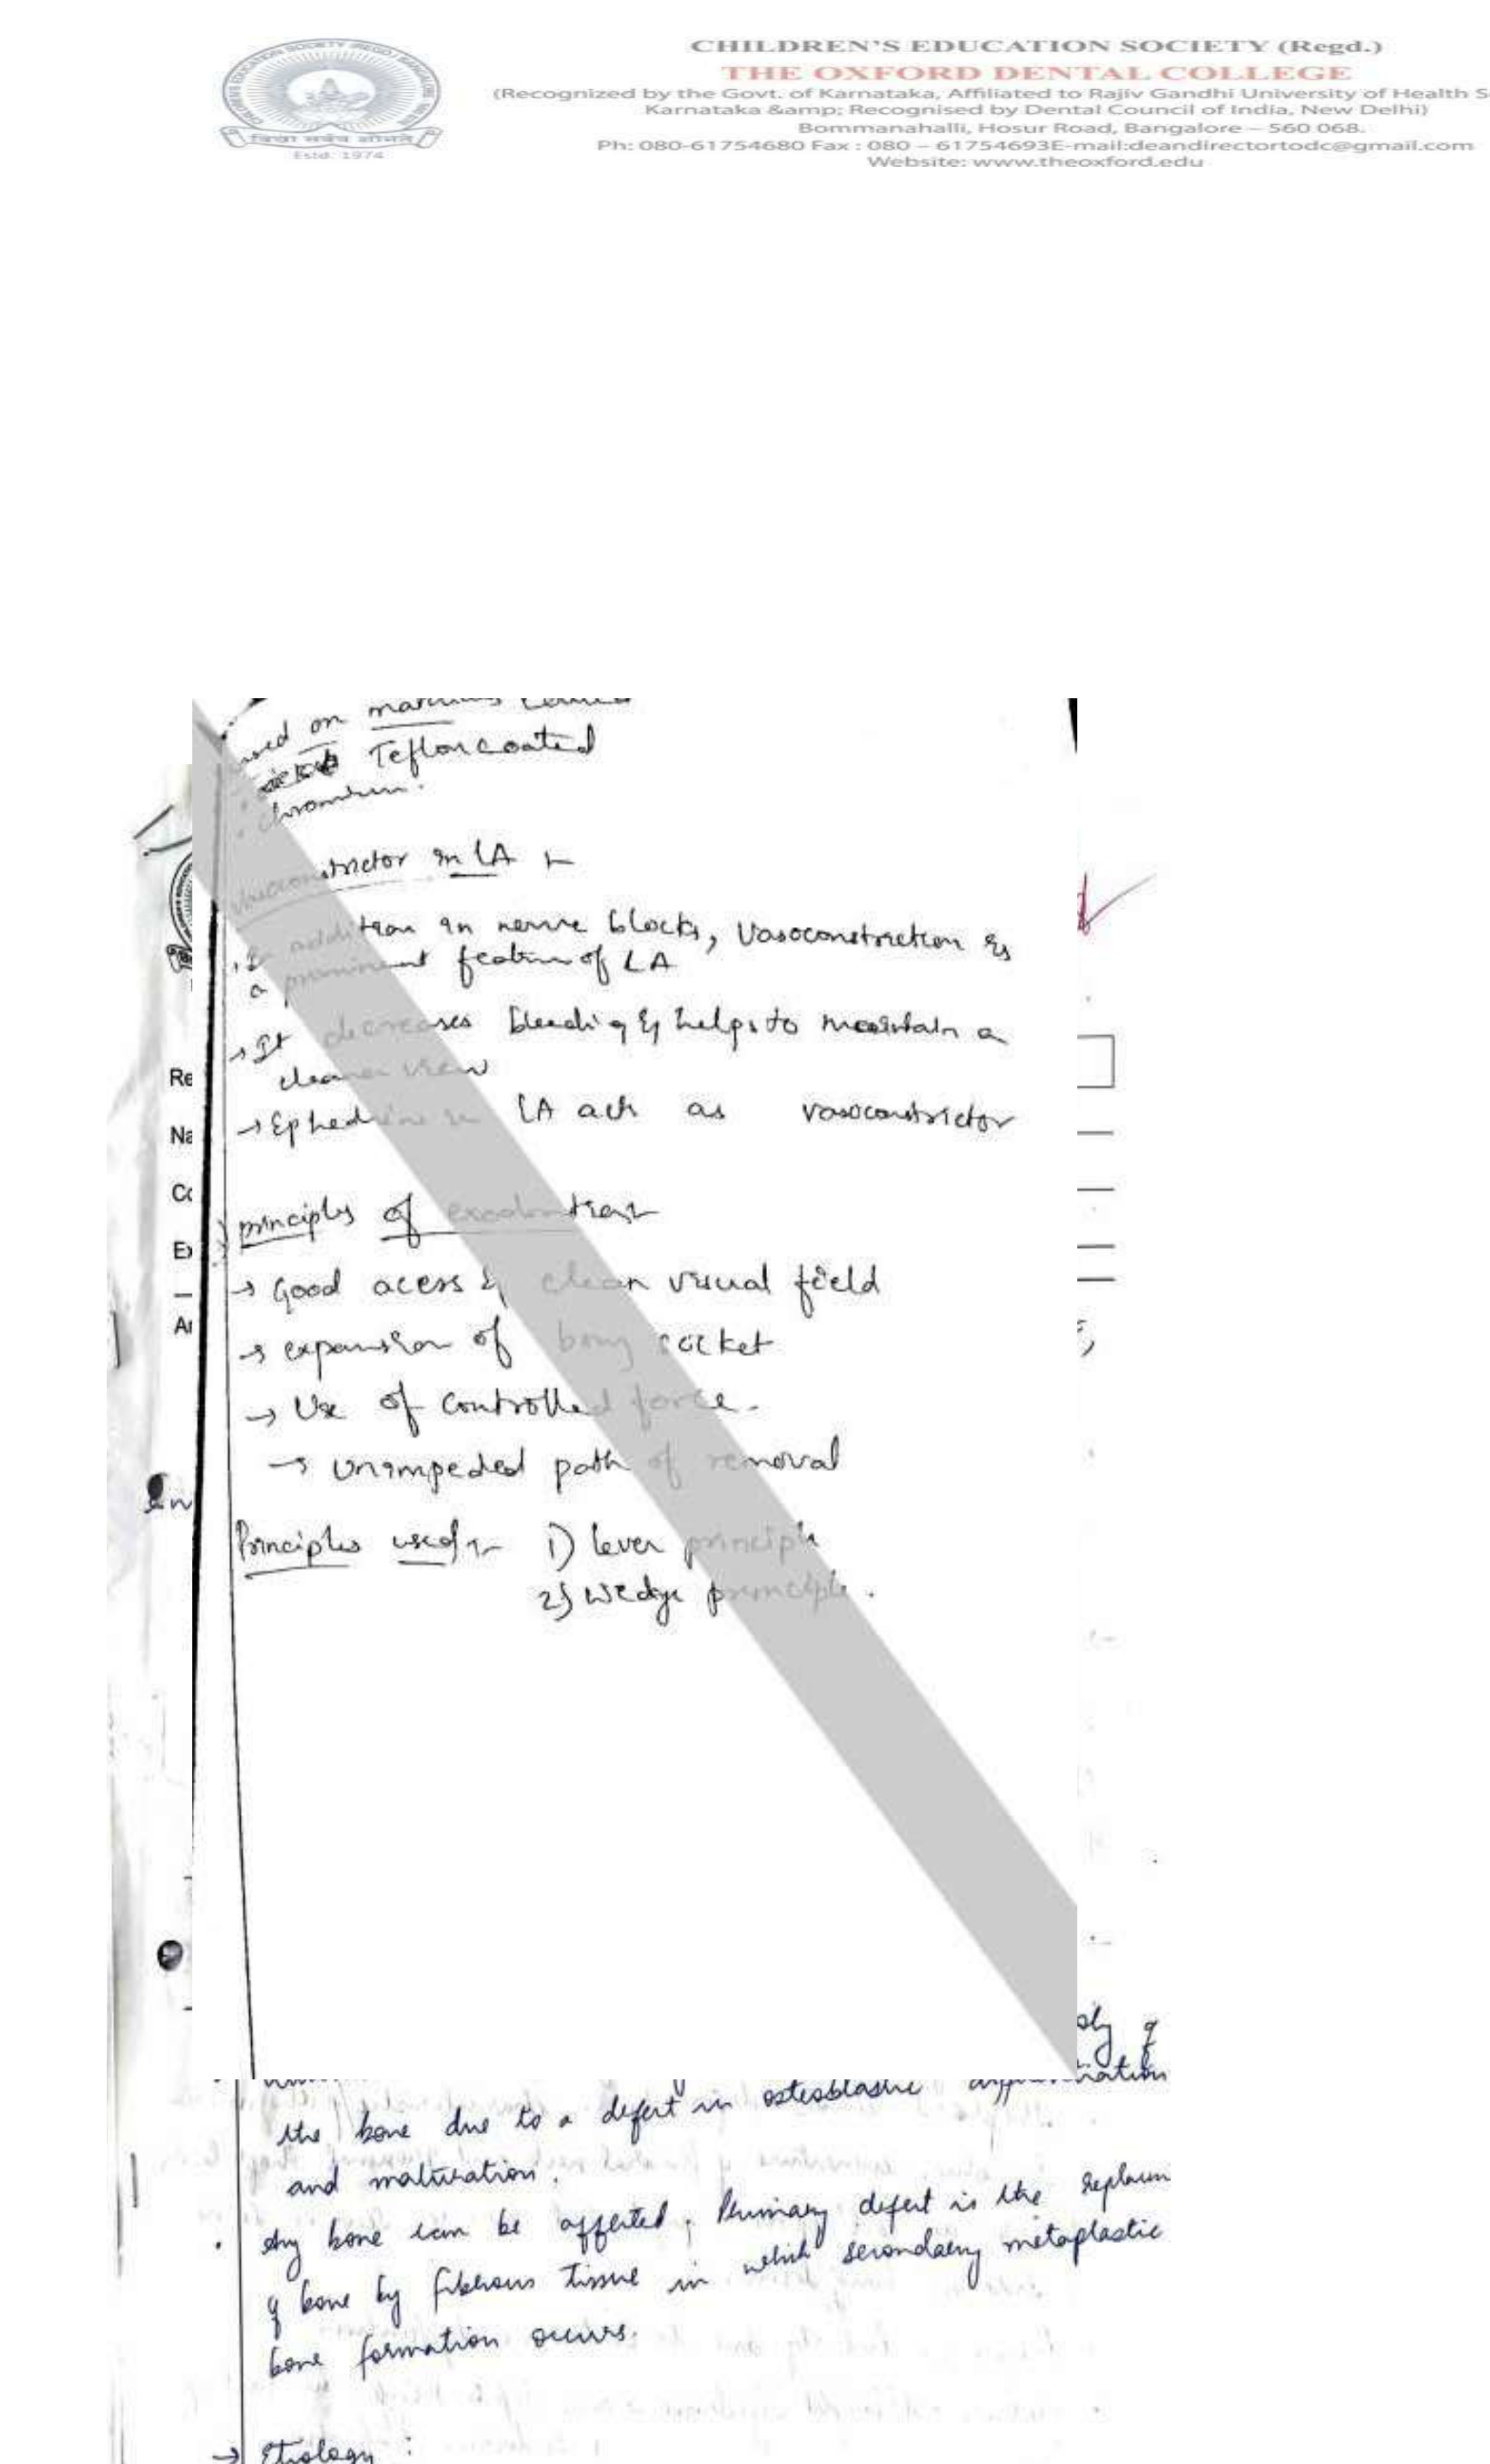 CHILDREN'S EDUCATION SOCIETY (Regd.)
THE OXFORD DENTAL COLLEGE
(Recognized by the Govt. of Karnataka, Affiliated to Rajiv Gandhi University of Health S
Karnataka &amp; Recognised by Dental Council of India, New Delhi)
Bommanahalli, Hosur Road, Bangalore – 560 068.
Ph: 080-61754680 Fax : 080 – 61754693E-mail:deandirectortodc@gmail.com
Website: www.theoxford.edu
Estd: 1974
on
Teflon coated
chromium.
Vasoconstrictor in LA
In addition in nerve blocks, Vasoconstriction is
a prominent feature of LA
→ It decreases bleeding & helps to maintain a
cleaner view
→ Ephedrine in LA act as vasoconstrictor
principles of exodontia
→ Good acess & clean visual field
→ expansion of bony socket
→ Use of controlled force.
→ unimpeded path of removal
Principles used 1) lever principle
2) wedge principle.
Re
Na
Co
Ex
the bone due to a defect in osteoblastic
and maturation.
• Any bone can be affected. Primary defect is the replacem
of bone by fibrous tissue in which secondary metaplastic
bone formation occurs.
→ Etiology :